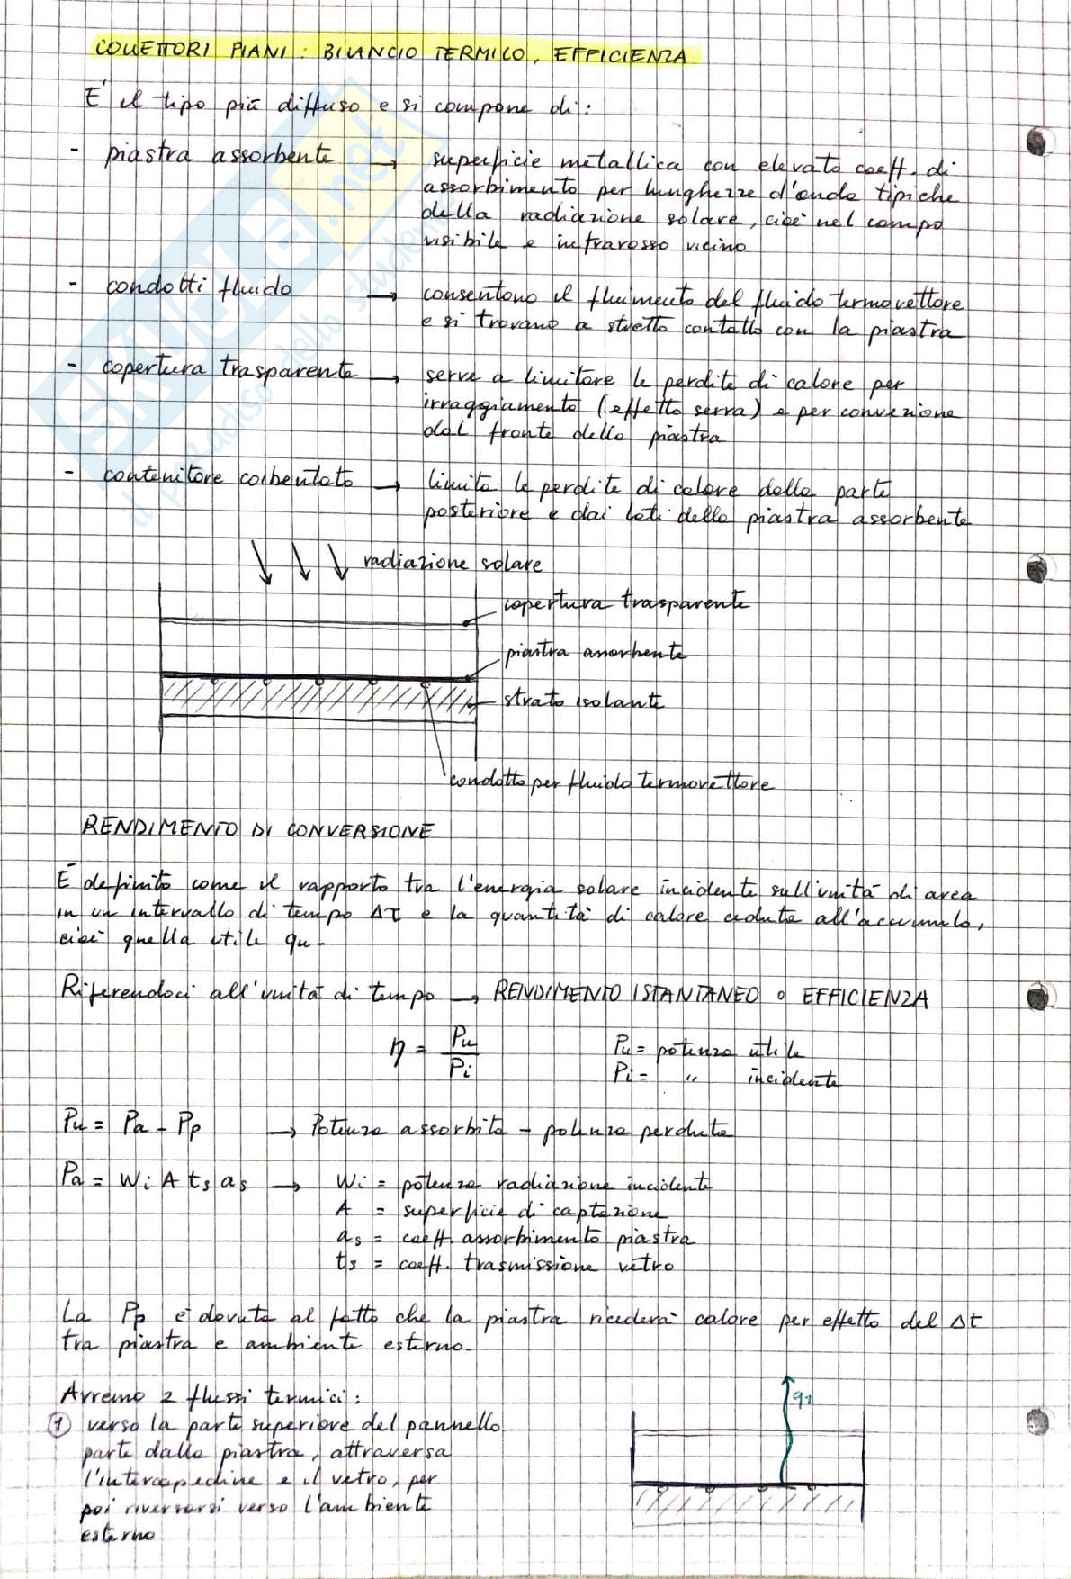 COLLETTORI PIANI : BILANCIO TERMICO, EFFICIENZA
E' il tipo più diffuso e si compone di :
- piastra assorbente → superficie metallica con elevato coeff. di
assorbimento per lunghezze d'onda tipiche
della radiazione solare, cioè nel campo
visibile e infrarosso vicino
- condotti fluido → consentono il fluimento del fluido termovettore
e si trovano a stretto contatto con la piastra
- copertura trasparente → serve a limitare le perdite di calore per
irraggiamento (effetto serra) e per convezione
dal fronte della piastra
- contenitore coibentato → limita le perdite di calore dalla parte
posteriore e dai lati della piastra assorbente
radiazione solare
copertura trasparente
piastra assorbente
strato isolante
condotto per fluido termovettore
RENDIMENTO DI CONVERSIONE
E' definito come il rapporto tra l'energia solare incidente sull'unità di area
in un intervallo di tempo Δτ e la quantità di calore ceduta all'accumulo,
cioè quella utile qu.
Riferendoci all'unità di tempo → RENDIMENTO ISTANTANEO o EFFICIENZA
η = Pu / Pi
Pu = potenza utile
Pi = " incidente
Pu = Pa - Pp → Potenza assorbita - potenza perduta
Pa = Wi A ts as → Wi = potenza radiazione incidente
A = superficie di captazione
as = coeff. assorbimento piastra
ts = coeff. trasmissione vetro
La Pp è dovuta al fatto che la piastra ricederà calore per effetto del Δt
tra piastra e ambiente esterno.
Avremo 2 flussi termici :
① verso la parte superiore del pannello
parte dalla piastra, attraversa
l'intercapedine e il vetro, per
poi riversarsi verso l'ambiente
esterno
q1